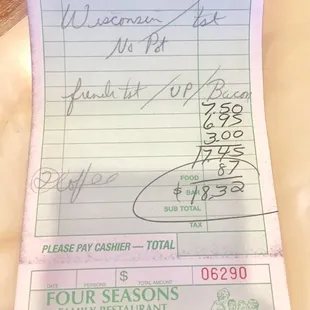 Wisconsin / tst
No Pot
french tst / UP / Bacon
7.50
6.95
3.00
17.45
2 Coffee
87
FOOD
$ 18.32
BAR
SUB TOTAL
TAX
PLEASE PAY CASHIER — TOTAL
DATE PERSONS $ TOTAL AMOUNT 06290
FOUR SEASONS
FAMILY RESTAURANT